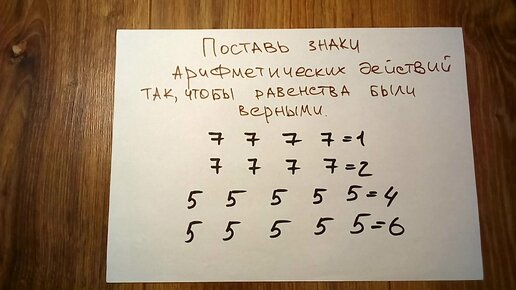 Поставь знаки
арифметических действий
так, чтобы равенства были
верными.
7 7 7 7=1
7 7 7 7=2
5 5 5 5 5=4
5 5 5 5 5=6